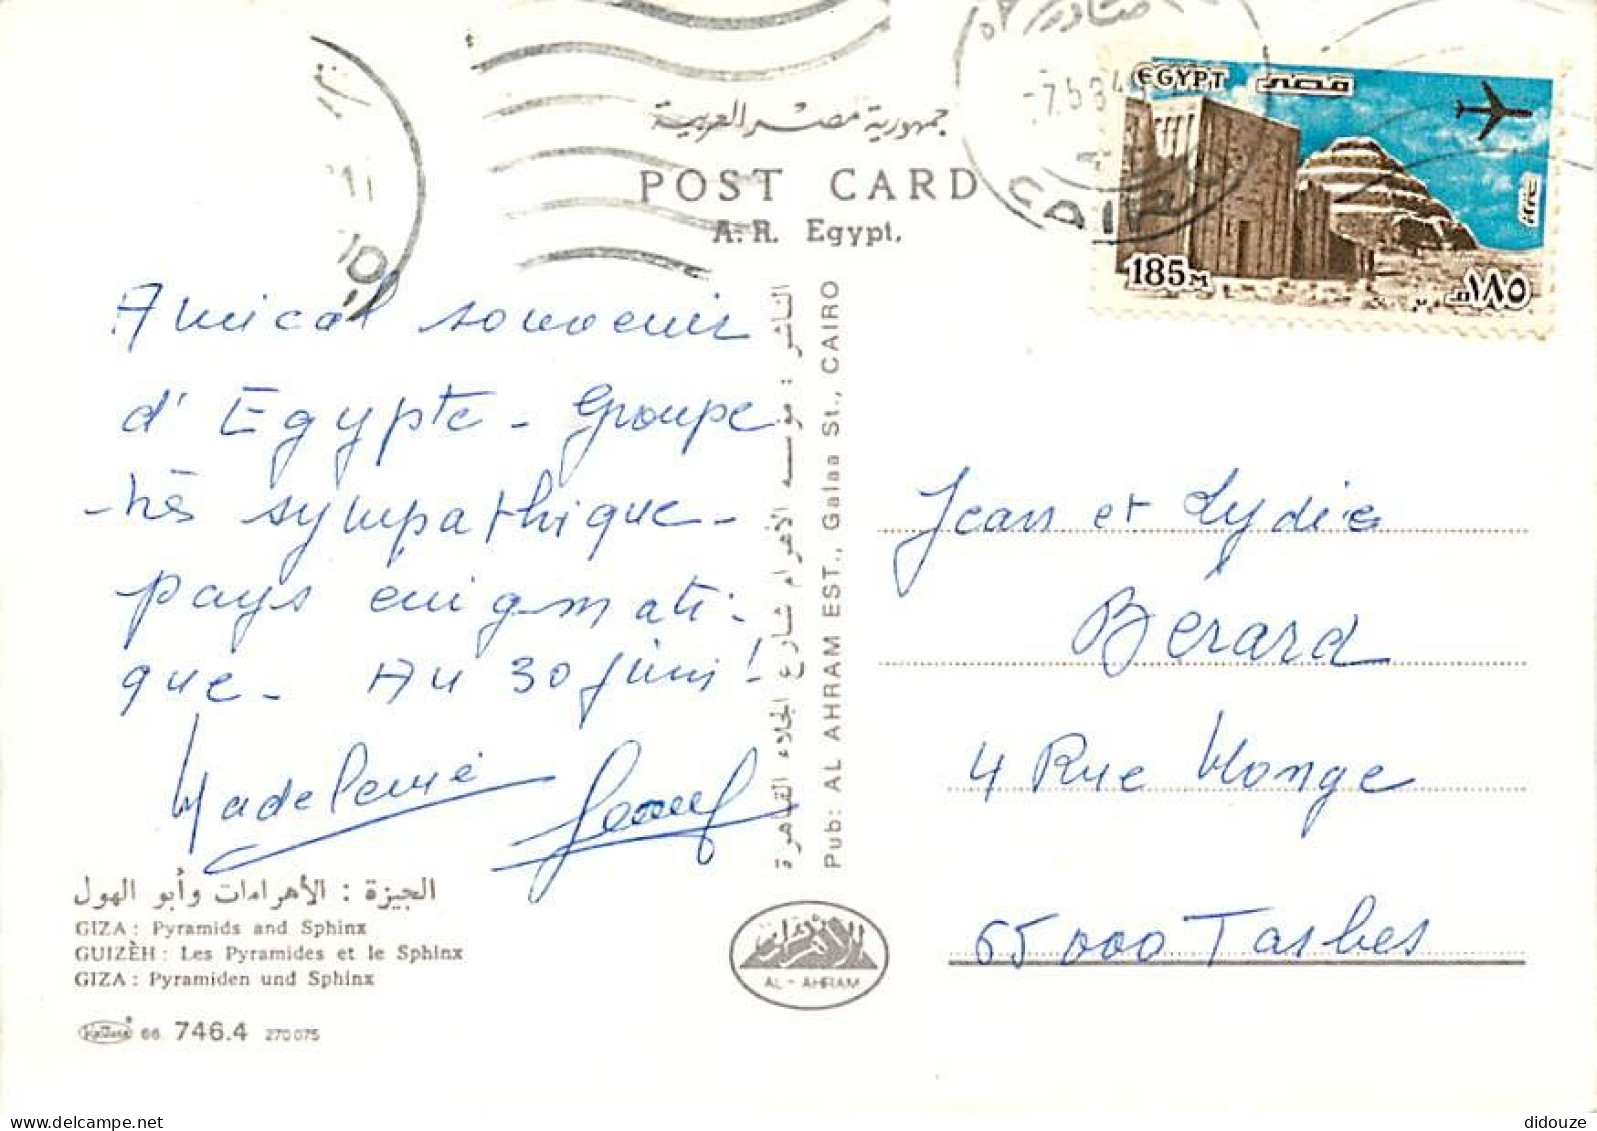 صادر
-7.5.84
CAIR
EGYPT مصر
185M ١٨٥م
جمهورية مصر العربية
POST CARD
A. R. Egypt.
Amical souvenir
d'Egypte - Groupe
très sympathique -
pays enigmati-
que - Au 30 juin !
Madeleine
الناشر : مؤسسه الأهرام شارع الجلاء القاهرة
Pub: AL AHRAM EST., Galaa St., CAIRO
Jean et Lydie
Bérard
4 Rue Monge
65000 Tarbes
الجيزة : الأهرامات وأبو الهول
GIZA : Pyramids and Sphinx
GUIZÈH : Les Pyramides et le Sphinx
GIZA : Pyramiden und Sphinx
66 746.4 270075
الأهرام
AL-AHRAM
didouze